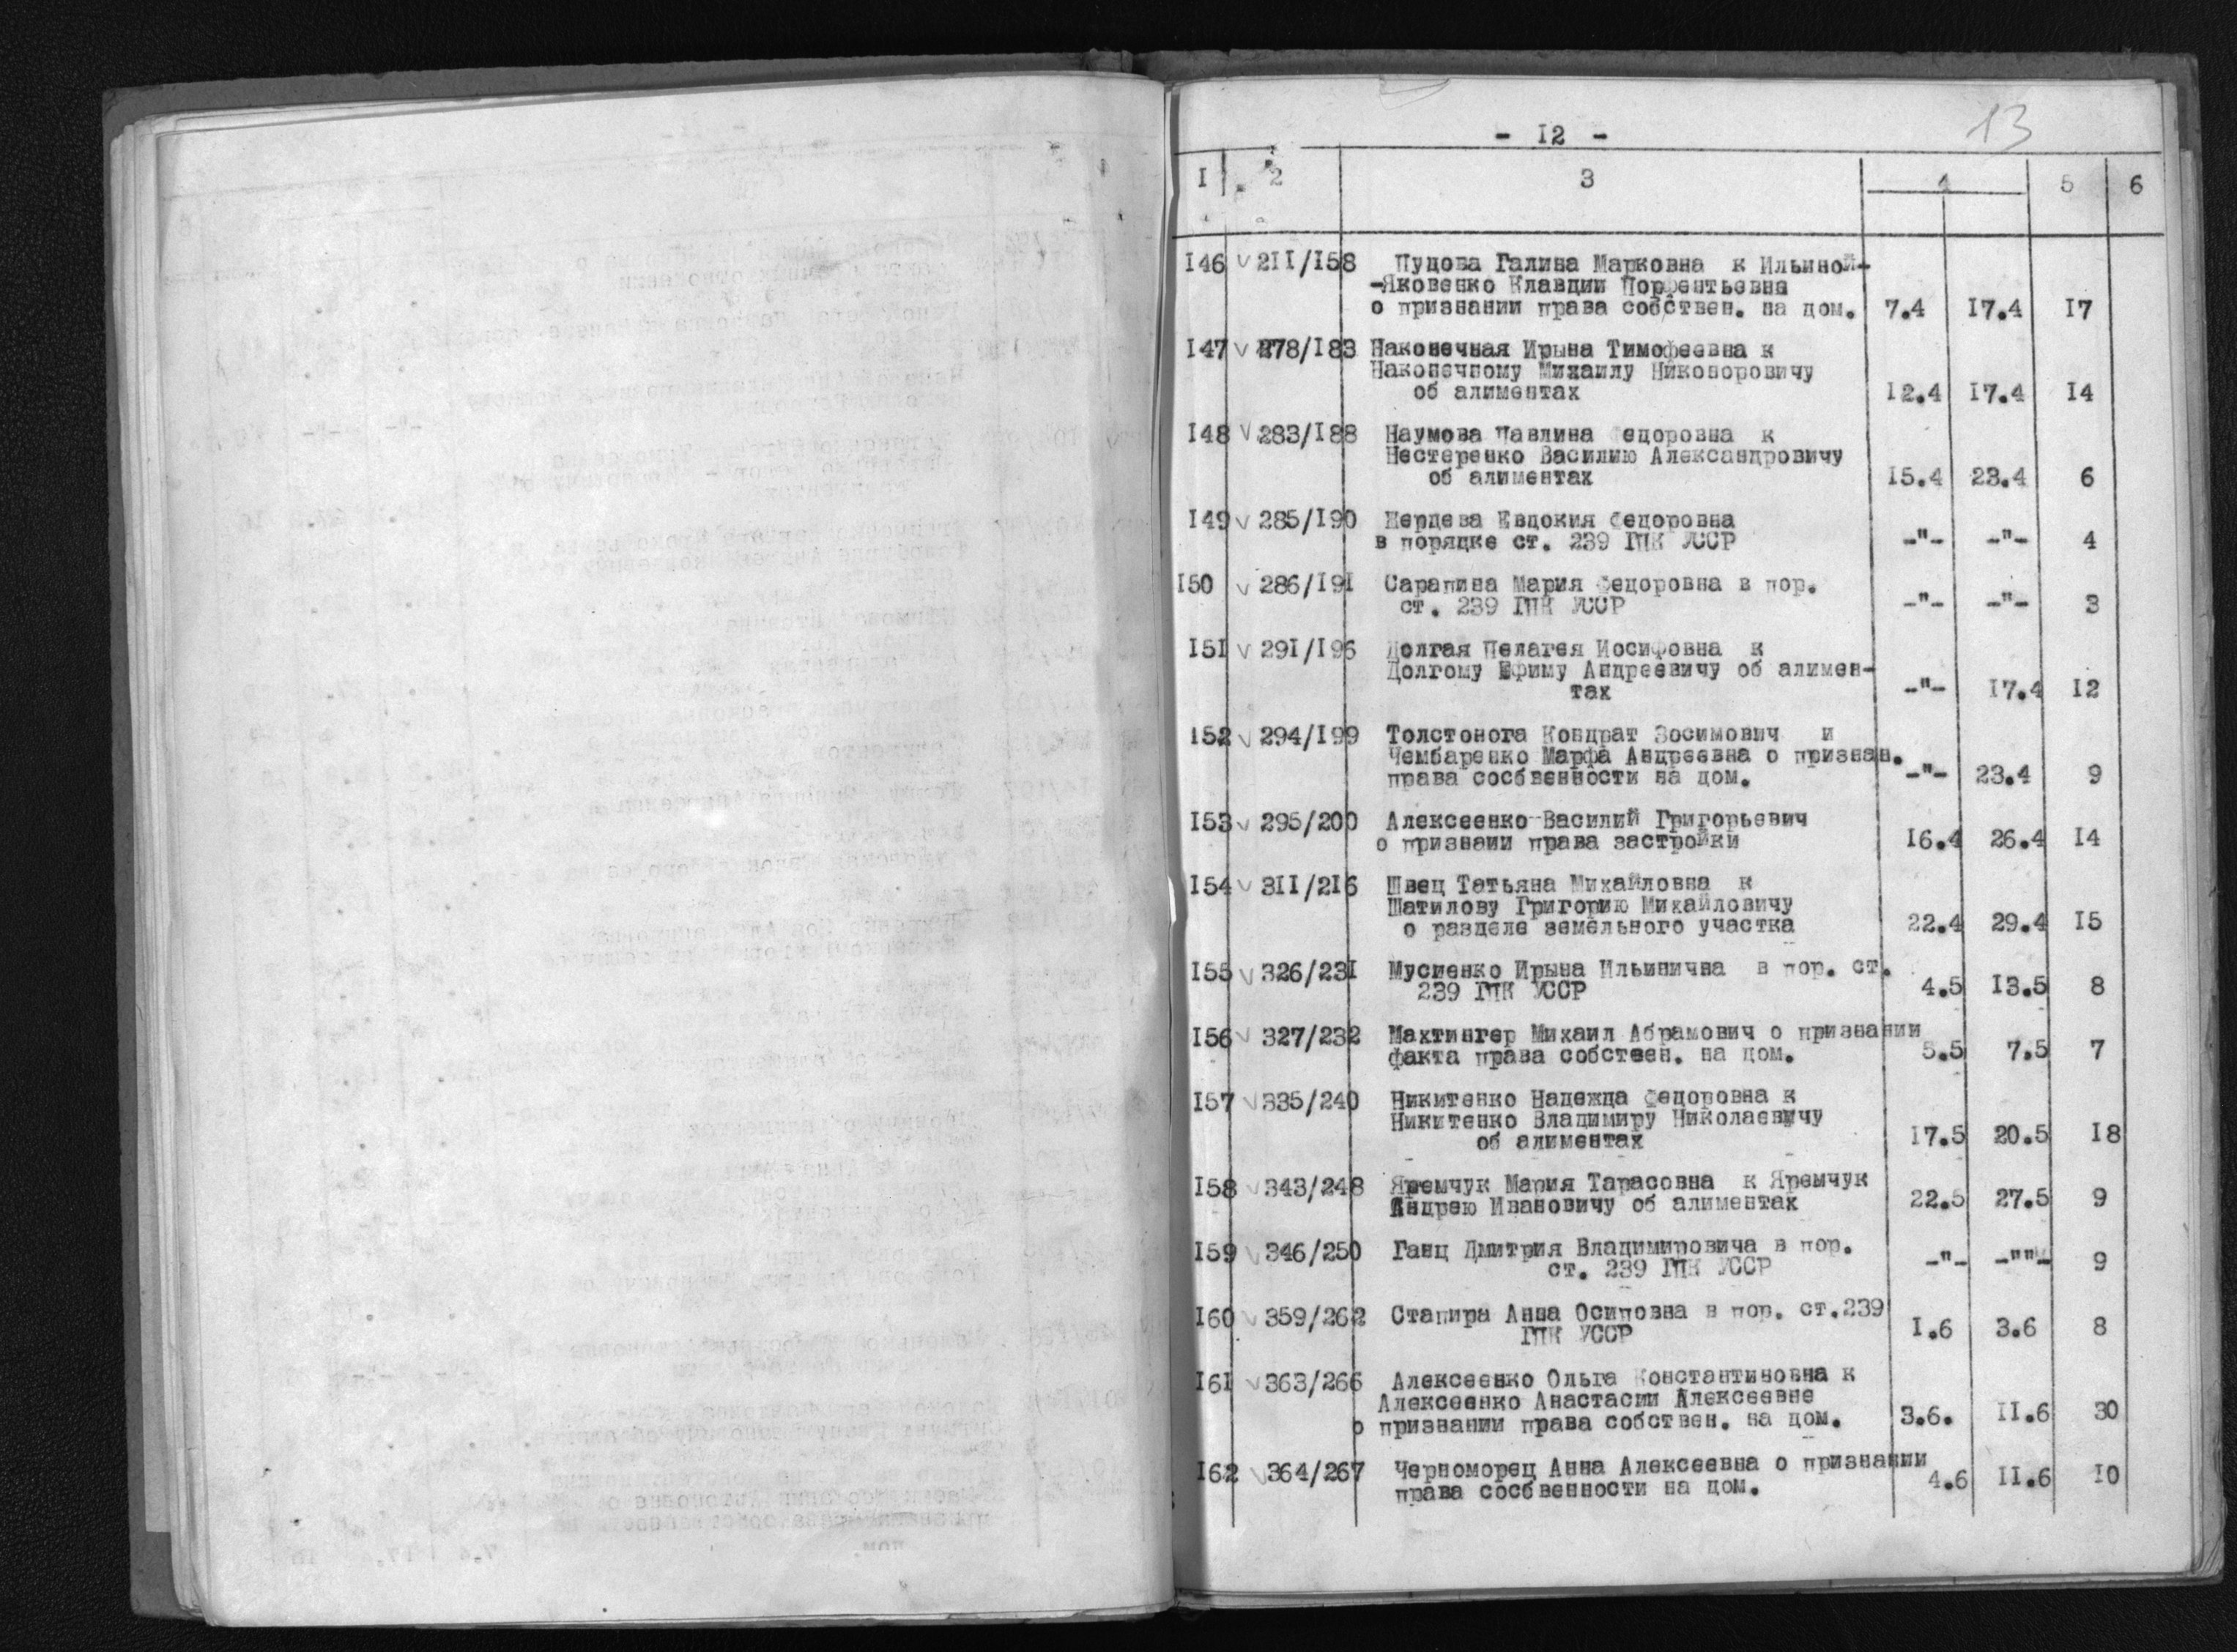 - I2 -
13
I 2 3 4 5 6
I46 √ 2II/I58 Пудова Галина Марковна к Ильиной-
-Яковенко Клавдии Порфентьевна
о признании права собствен. на дом. 7.4 I7.4 I7
I47 √ 278/I83 Наконечная Ирына Тимофеевна к
Наконечному Михаилу Никоноровичу
об алиментах I2.4 I7.4 I4
I48 √ 283/I88 Наумова Павлина Федоровна к
Нестеренко Василию Александровичу
об алиментах I5.4 23.4 6
I49 √ 285/I90 Жердева Евдокия Федоровна
в порядке ст. 239 ГПК УССР -"- -"- 4
I50 √ 286/I9I Сарапина Мария Федоровна в пор.
ст. 239 ГПК УССР -"- -"- 3
I5I √ 29I/I96 Долгая Пелагея Иосифовна к
Долгому Ефиму Андреевичу об алимен-
тах -"- I7.4 I2
I52 √ 294/I99 Толстонога Кондрат Зосимович и
Чембаренко Марфа Андреевна о признан.
права сосбвенности на дом. -"- 23.4 9
I53 √ 295/200 Алексеенко Василий Григорьевич
о признаии права застройки I6.4 26.4 I4
I54 √ 3II/2I6 Швец Татьяна Михайловна к
Шатилову Григорию Михайловичу
о разделе земельного участка 22.4 29.4 I5
I55 √ 326/23I Мусиенко Ирына Ильинична в пор. ст.
239 ГПК УССР 4.5 I3.5 8
I56 √ 327/232 Махтингер Михаил Абрамович о признании
факта права собствен. на дом. 5.5 7.5 7
I57 √ 335/240 Никитенко Надежда Федоровна к
Никитенко Владимиру Николаевичу
об алиментах I7.5 20.5 I8
I58 √ 343/248 Яремчук Мария Тарасовна к Яремчук
Андрею Ивановичу об алиментах 22.5 27.5 9
I59 √ 346/250 Ганц Дмитрия Владимировича в пор.
ст. 239 ГПК УССР -"- -""- 9
I60 √ 359/262 Стапира Анна Осиповна в пор. ст.239
ГПК УССР I.6 3.6 8
I6I √ 363/266 Алексеенко Ольга Константиновна к
Алексеенко Анастасии Алексеевне
о признании права собствен. на дом. 3.6. II.6 30
I62 √ 364/267 Черноморец Анна Алексеевна о признании
права сосбвенности на дом. 4.6 II.6 I0